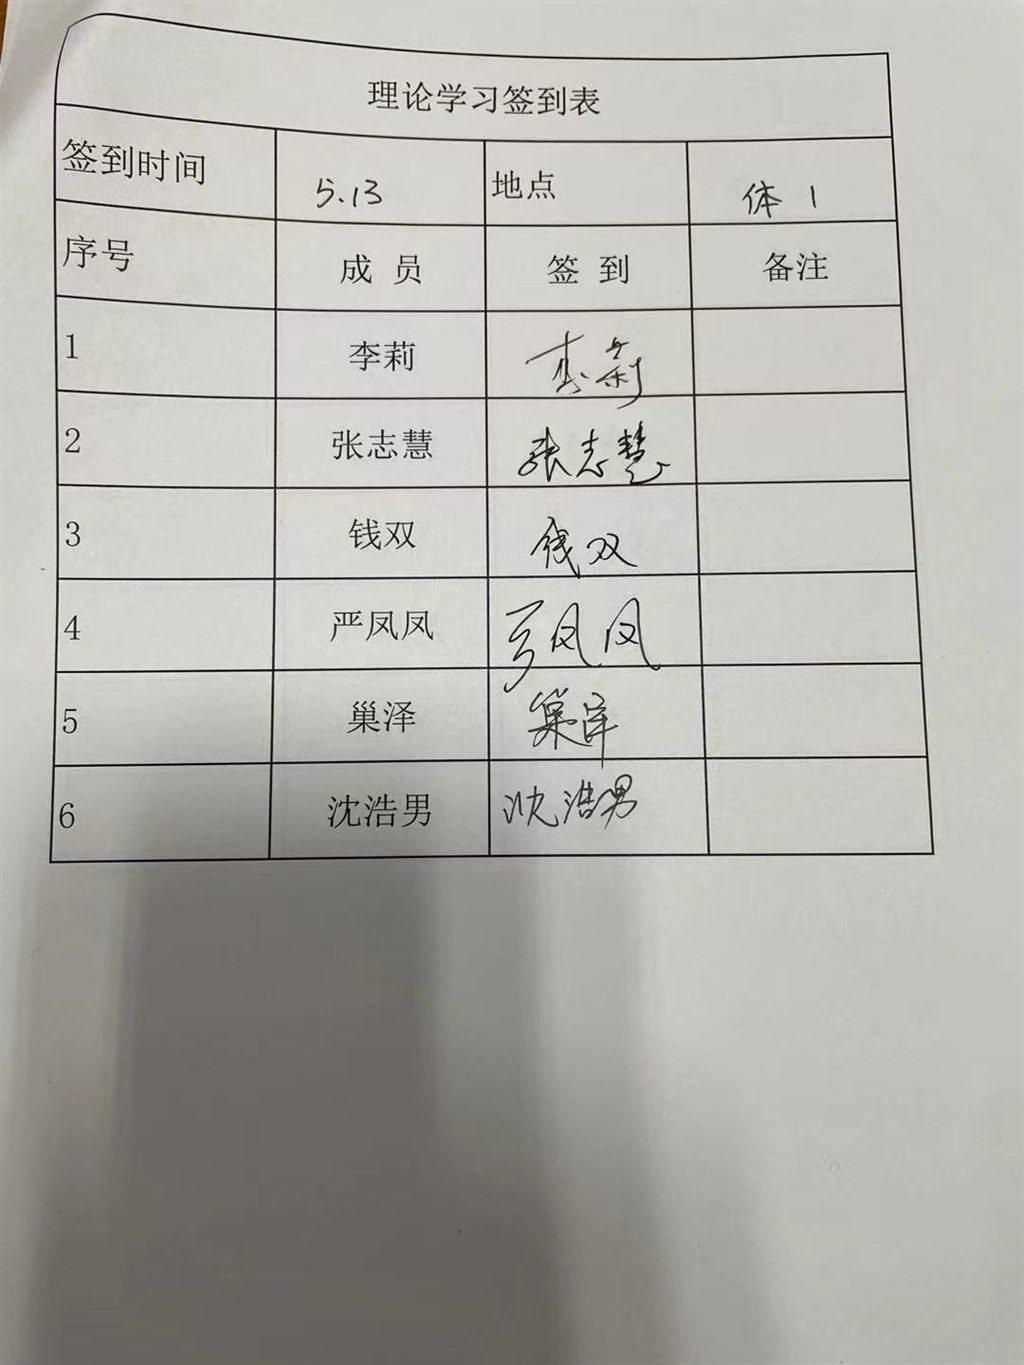 理论学习签到表
签到时间 5.13 地点 体 1
序号 成 员 签 到 备注
1 李莉 李莉
2 张志慧 张志慧
3 钱双 钱双
4 严凤凤 严凤凤
5 巢泽 巢泽
6 沈浩男 沈浩男